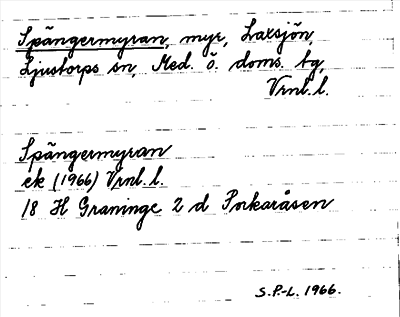 Spångermyran, myr, Laxsjön,
Ljustorps sn, Med. ö. doms. tg,
Vrnl. l.
Spångermyran
ek (1966) Vrnl. l.
18 H Graninge 2 d Porkaråsen
S.P.-L. 1966.